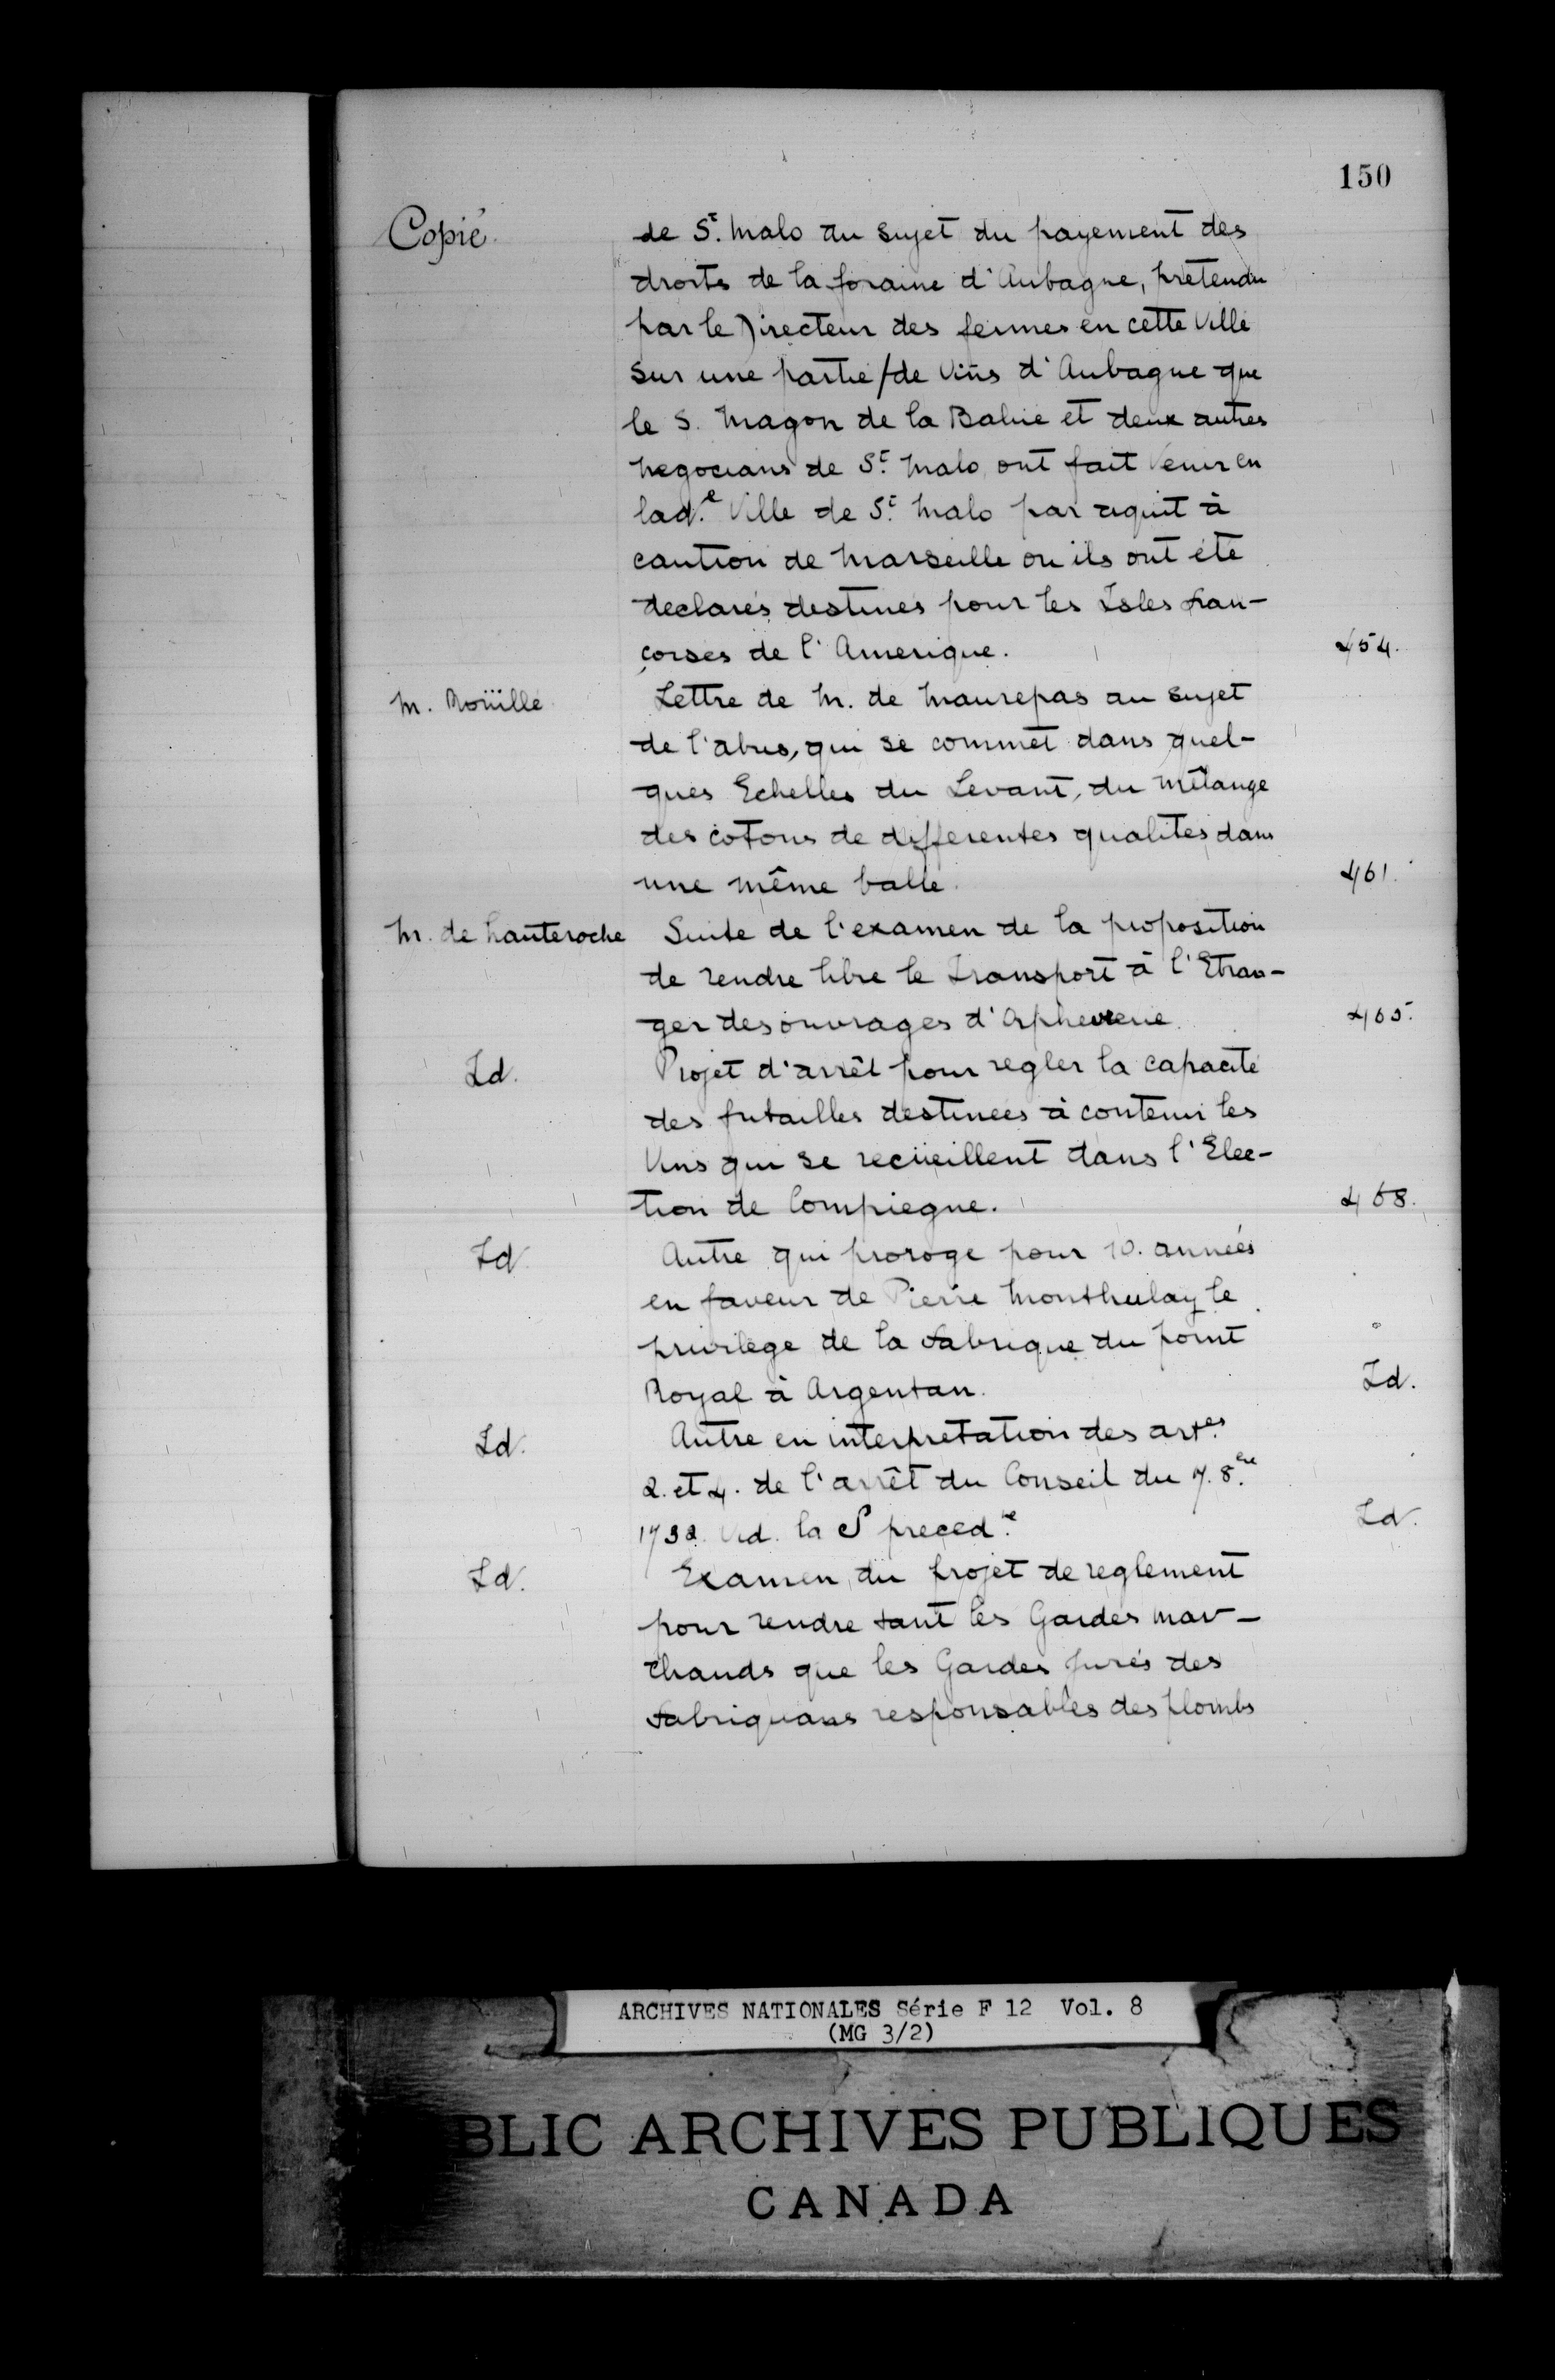 150
Copié. de St. Malo au sujet du payement des
droits de la foraine d'Aubagne, pretendu
par le Directeur des fermes en cette Ville
sur une partie de Vins d'Aubagne que
le S. Magon de la Balue et deux autres
negocians de St. Malo, ont fait Venir en
lad.e Ville de St. Malo par aquit à
caution de Marseille ou ils ont été
declarés destinés pour les Isles fran-
çoises de l'Amerique. 454.
M. Roüillé Lettre de M. de Maurepas au sujet
de l'abus, qui se commet dans quel-
ques Echelles du Levant, du mêlange
des cotons de differentes qualités dans
une même balle. 461.
M. de hauteroche Suite de l'examen de la proposition
de rendre libre le transport à l'Etran-
ger des ouvrages d'Orphevrerie. 465.
Id. Projet d'arrêt pour regler la capacité
des futailles destinées à contenir les
Vins qui se recüeillent dans l'Elec-
tion de Compiegne. 468.
Id. Autre qui proroge pour 10. années
en faveur de Pierre Monthulay le
privilege de la fabrique du point
Royal à Argentan. Id.
Id. Autre en interpretation des art.es
2. et 4. de l'arrêt du Conseil du 7. 8.bre
1732. Vid. la S preced.te Id.
Id. Examen du projet de reglement
pour rendre tant les Gardes mar-
chands que les Gardes jurés des
fabriquans responsables des plombs
ARCHIVES NATIONALES Série F 12 Vol. 8
(MG 3/2)
BLIC ARCHIVES PUBLIQUES
CANADA